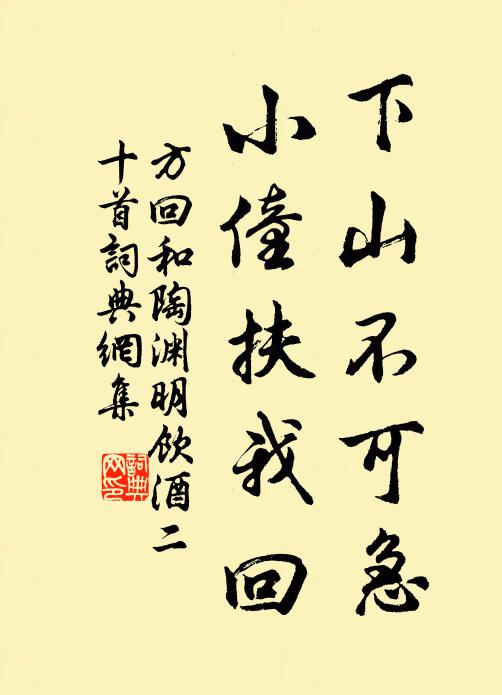 下山不可急
小僮扶我回
方回和陶渊明饮酒二
十首詞典網集
詞典
网印